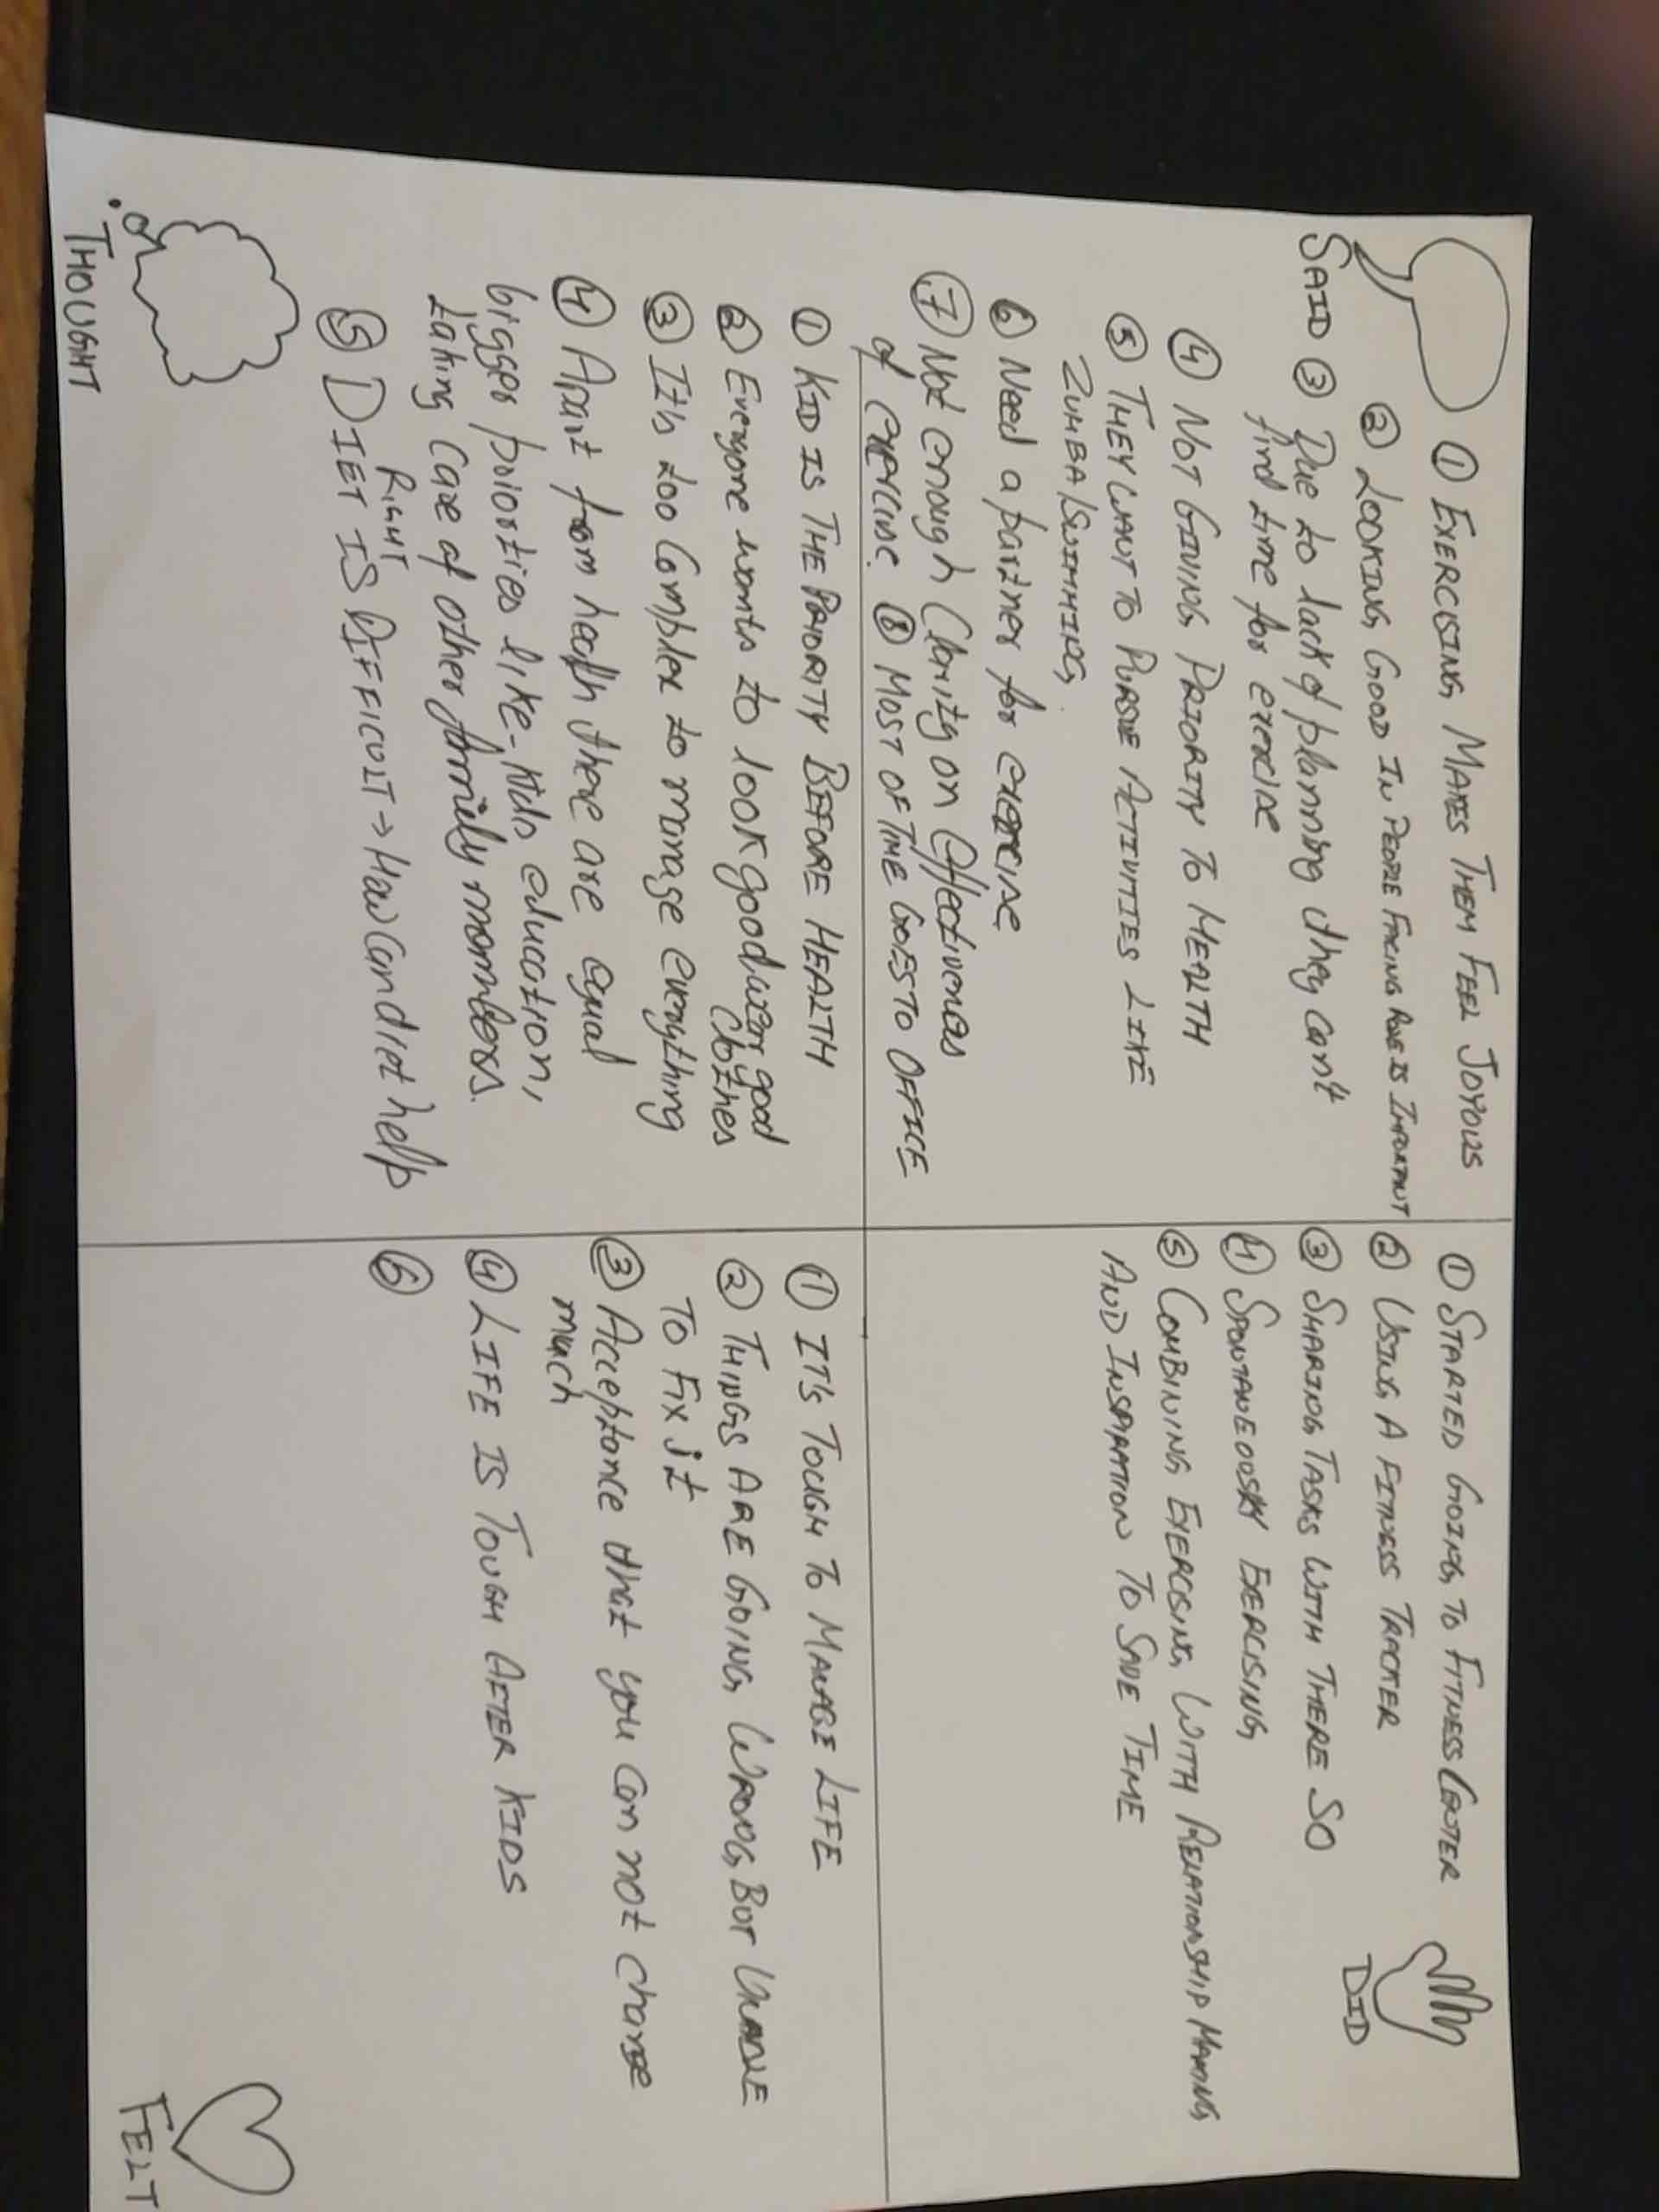 ① EXERCISING MAKES THEM FEEL JOYOUS
② LOOKING GOOD IN PEOPLE FACING ROLE IS IMPORTANT
SAID
③ Due to lack of planning they can't
find time for exercise
④ NOT GIVING PRIORITY TO HEALTH
⑤ THEY WANT TO PURSUE ACTIVITIES LIKE
ZUMBA/SWIMMING
⑥ Need a partner for exercise
⑦ Not enough Clarity on Effectiveness
of exercise. ⑧ MOST OF TIME GOES TO OFFICE
① STARTED GOING TO FITNESS CENTER
② USING A FITNESS TRACKER
DID
③ SHARING TASKS WITH THERE SO
④ SPONTANEOUSLY EXERCISING
⑤ COMBINING EXERCISING WITH RELATIONSHIP MAKING
AND INSPIRATION TO SAVE TIME
① KID IS THE PRIORITY BEFORE HEALTH
② Everyone wants to look good wear good
clothes
③ It's too Complex to manage everything
④ Apart from health there are equal
bigger priorties like - kids education,
taking care of other family members.
⑤ DIET IS DIFFICULT → How can diet help
RIGHT
THOUGHT
① IT'S TOUGH TO MANAGE LIFE
② THINGS ARE GOING WRONG BUT UNABLE
TO FIX it
③ Acceptance that you can not change
much
④ LIFE IS TOUGH AFTER KIDS
⑥
FELT